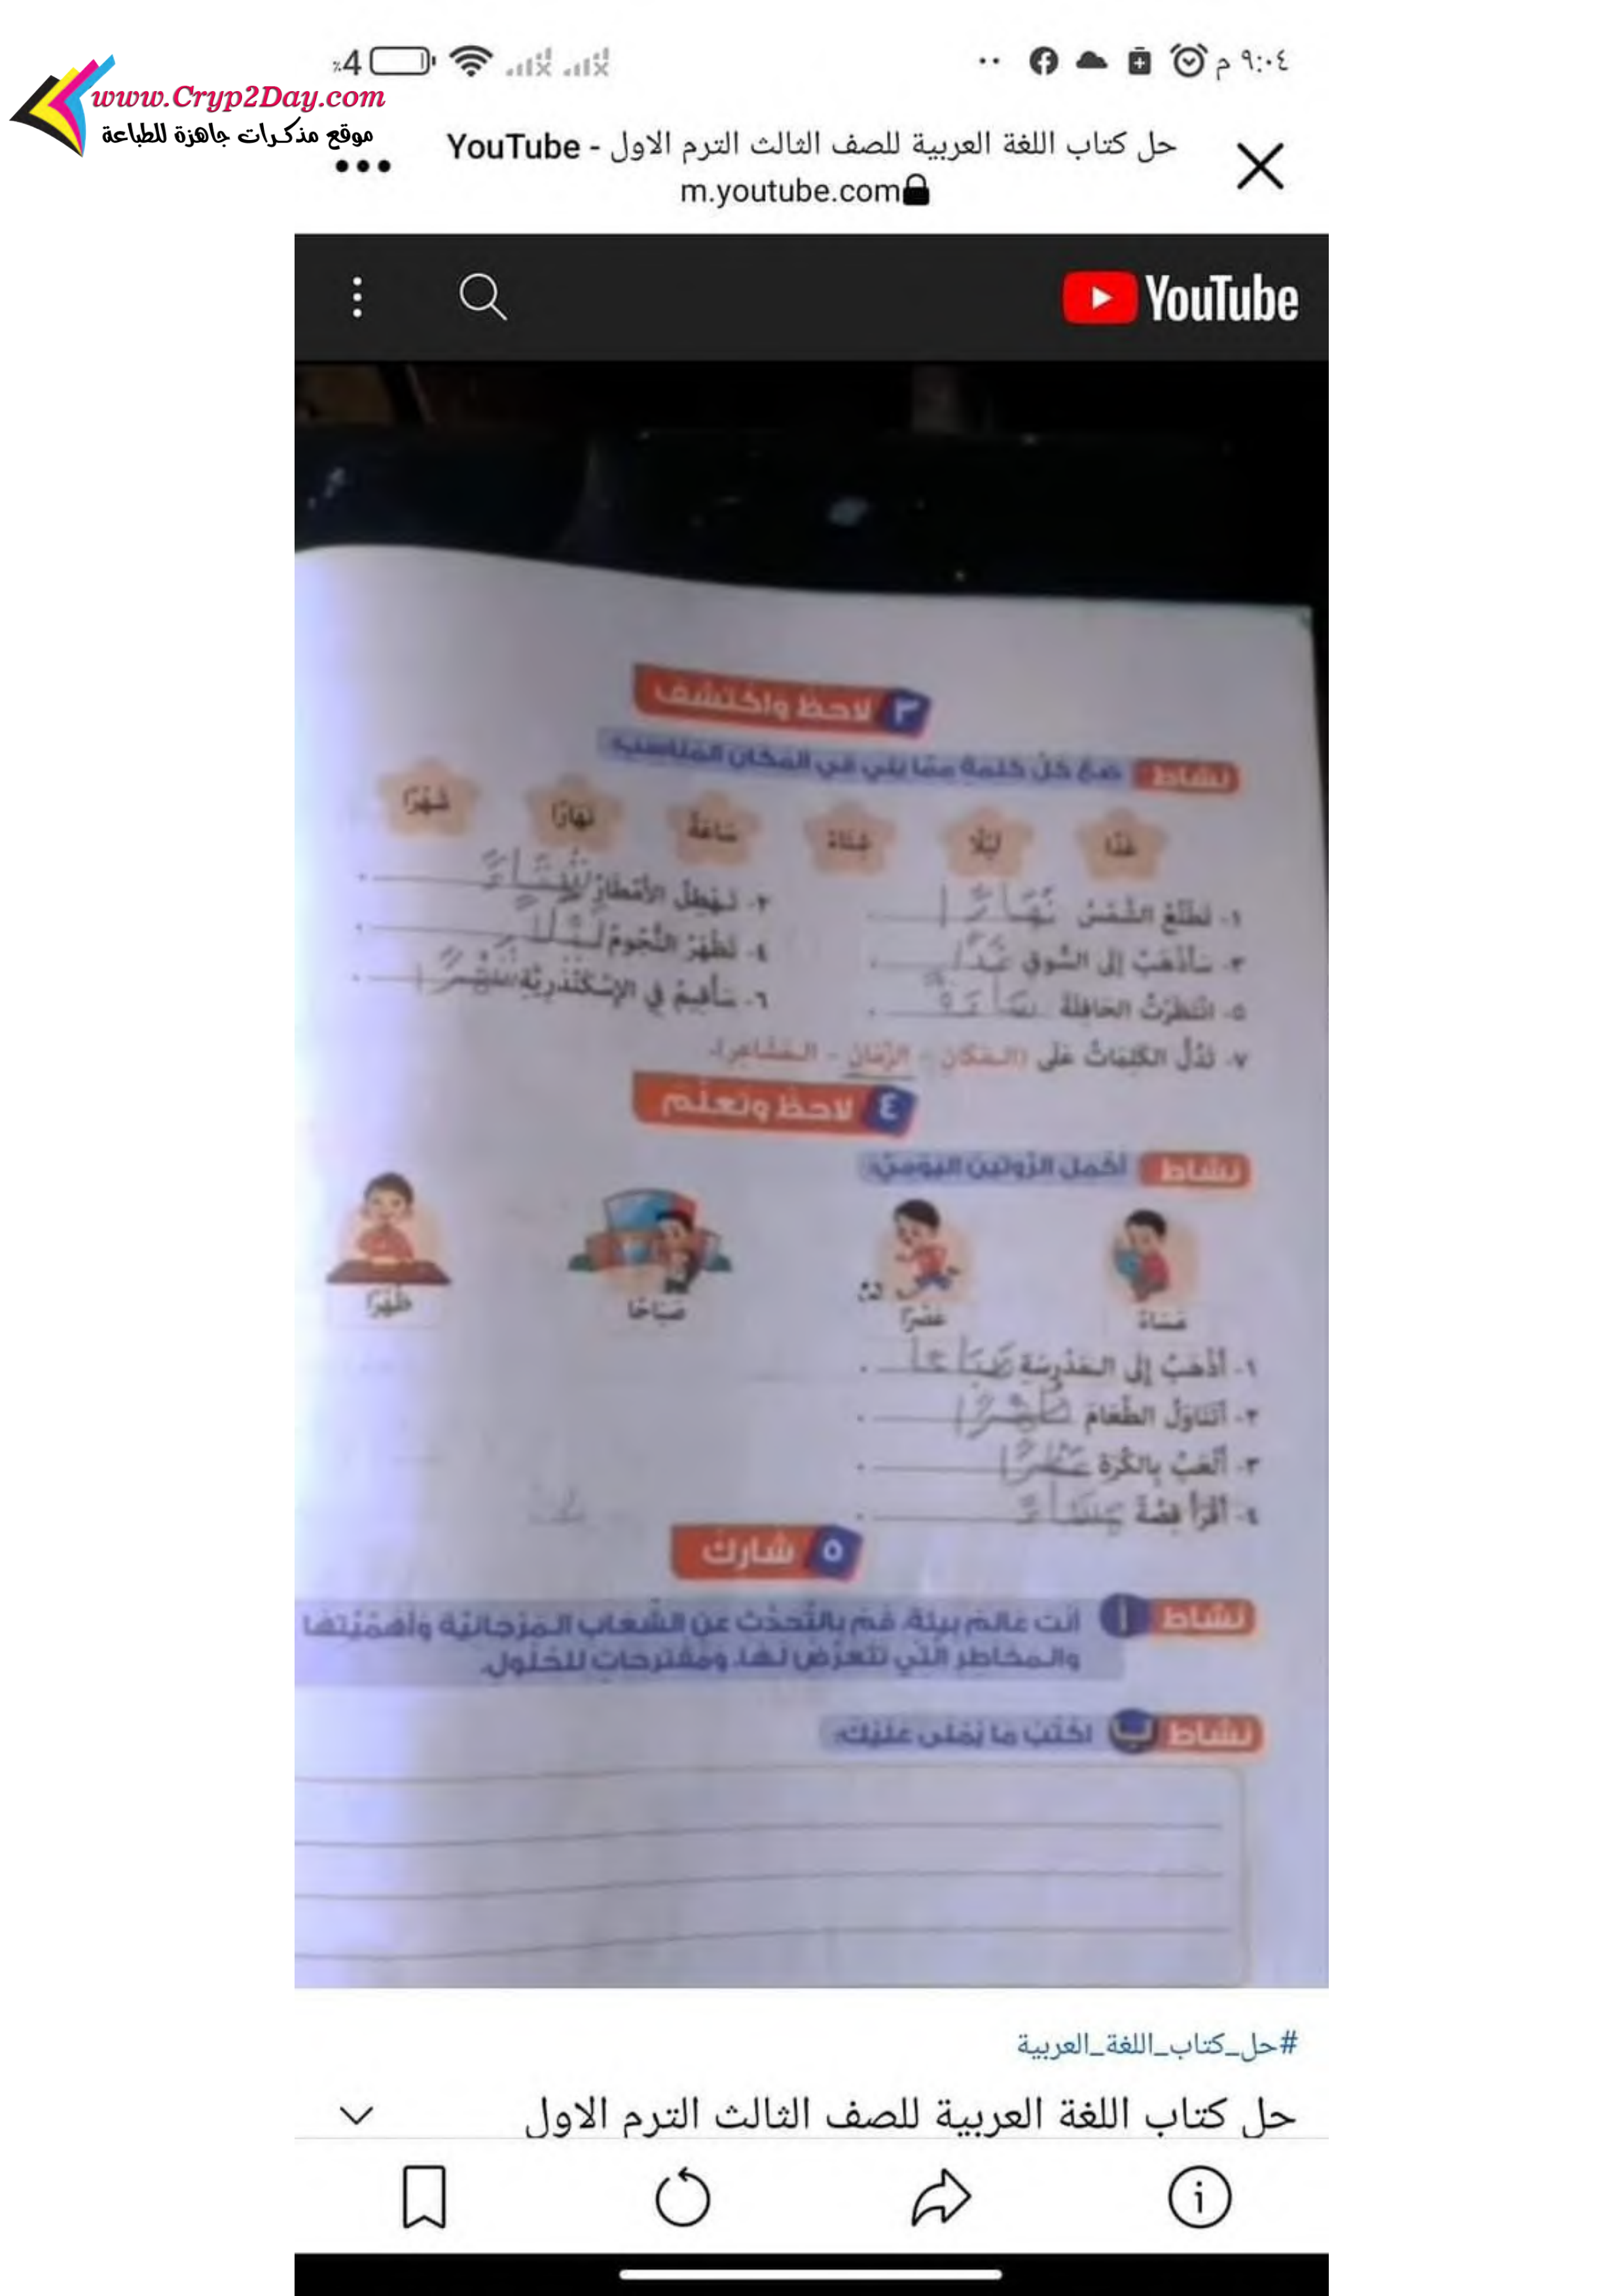 www.Cryp2Day.com
موقع مذكرات جاهزة للطباعة
٩:٠٤ م
٪4
حل كتاب اللغة العربية للصف الثالث الترم الاول - YouTube
m.youtube.com
YouTube
٣ لاحظ واكتشف
نشاط ضع كل كلمة مما يلي في المكان المناسب:
غَدًا لَيْلًا شِتَاءً سَاعَةً نَهَارًا شَهْرًا
١- تَطْلُعُ الشَّمْسُ نَهَارًا.
٢- تَهْطِلُ الأَمْطَارُ شِتَاءً.
٣- سَأَذْهَبُ إِلَى السُّوقِ غَدًا.
٤- تَظْهَرُ النُّجُومُ لَيْلًا.
٥- انْتَظَرْتُ الحَافِلَةَ ساعة.
٦- سَأُقِيمُ فِي الإِسْكَنْدَرِيَّةِ شَهْرًا.
٧- تَدُلُّ الكَلِمَاتُ عَلَى (المَكَانِ - الزَّمَانِ - المَشَاعِرِ).
٤ لاحظ وتعلم
نشاط أكمل الروتين اليومي:
مَسَاءً عَصْرًا صَبَاحًا ظُهْرًا
١- أَذْهَبُ إِلَى المَدْرَسَةِ صَبَاحًا.
٢- أَتَنَاوَلُ الطَّعَامَ ظُهْرًا.
٣- أَلْعَبُ بِالكُرَةِ عَصْرًا.
٤- أَقْرَأُ قِصَّةً مَسَاءً.
٥ شارك
نشاط أ أنت عالم بيئة، قم بالتحدث عن الشعاب المرجانية وأهميتها
والمخاطر التي تتعرض لها، ومقترحات للحلول.
نشاط ب اكتب ما يملى عليك:
#حل_كتاب_اللغة_العربية
حل كتاب اللغة العربية للصف الثالث الترم الاول